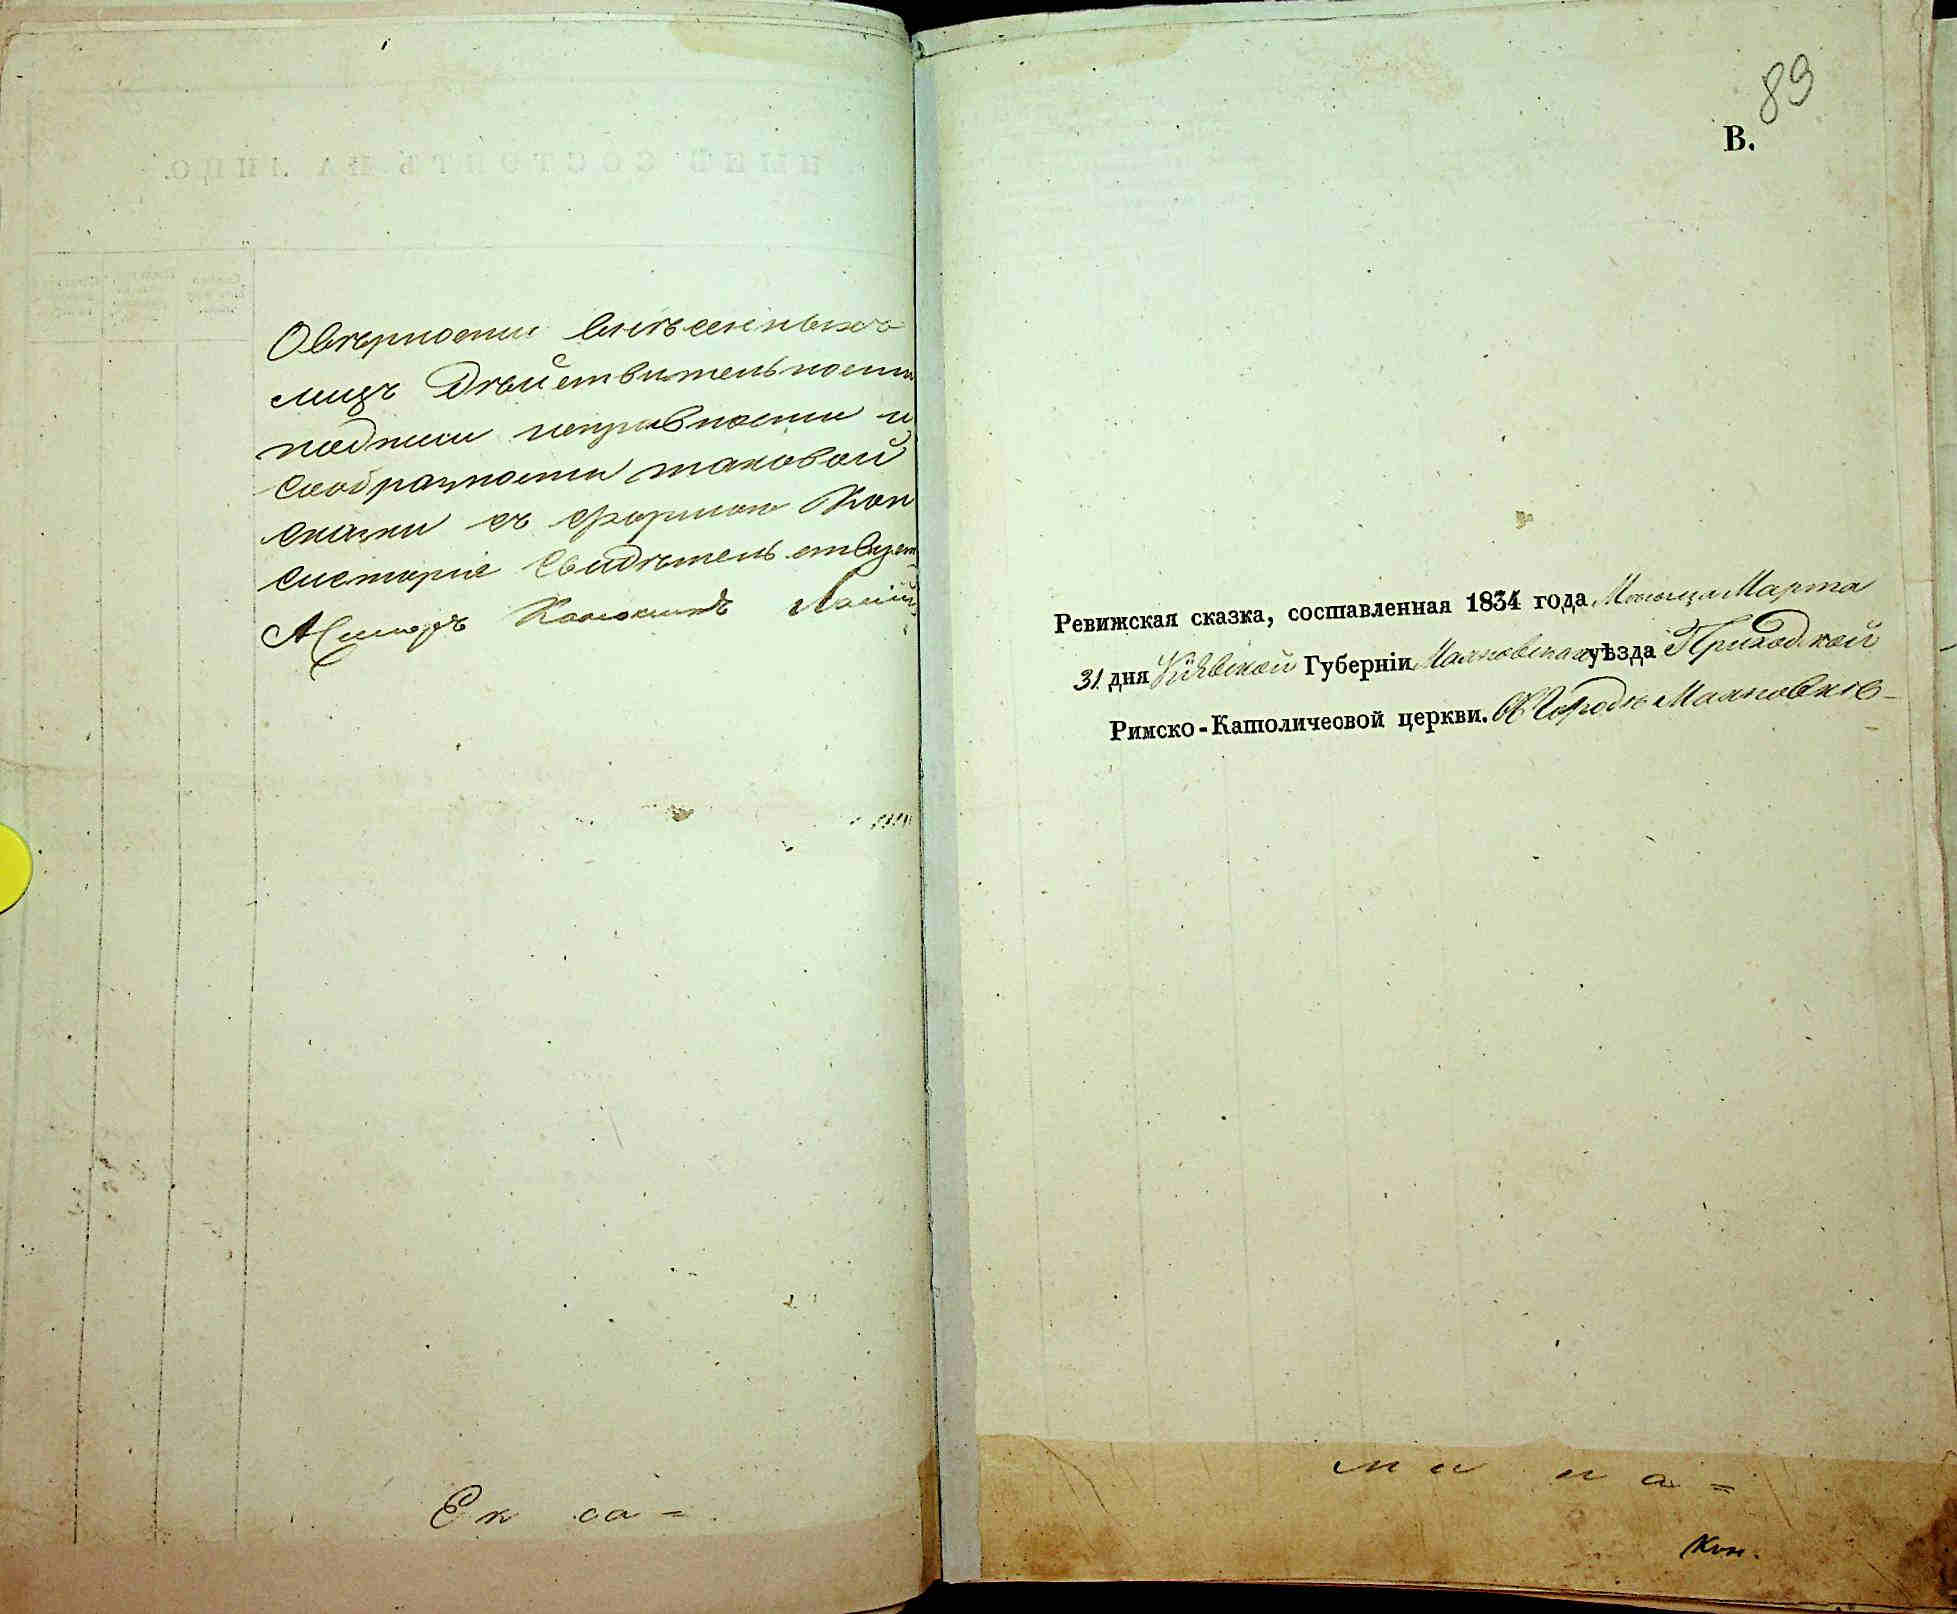 О вѣрности внѣсенныхъ
лицъ Дѣйствительности
подписи исправности и
сообразности таковой
скаски съ формою Кон
систорія Свидѣтельствуетъ
Асисоръ Каноникъ
Ек са=
89
В.
Ревижская сказка, составленная 1834 года Месяца Марта
31 дня Кіевской Губерніи Махновскаго уѣзда Приходской
Римско-Католичесвой церкви. Въ Городѣ Махновкѣ
ми на=
Кон.